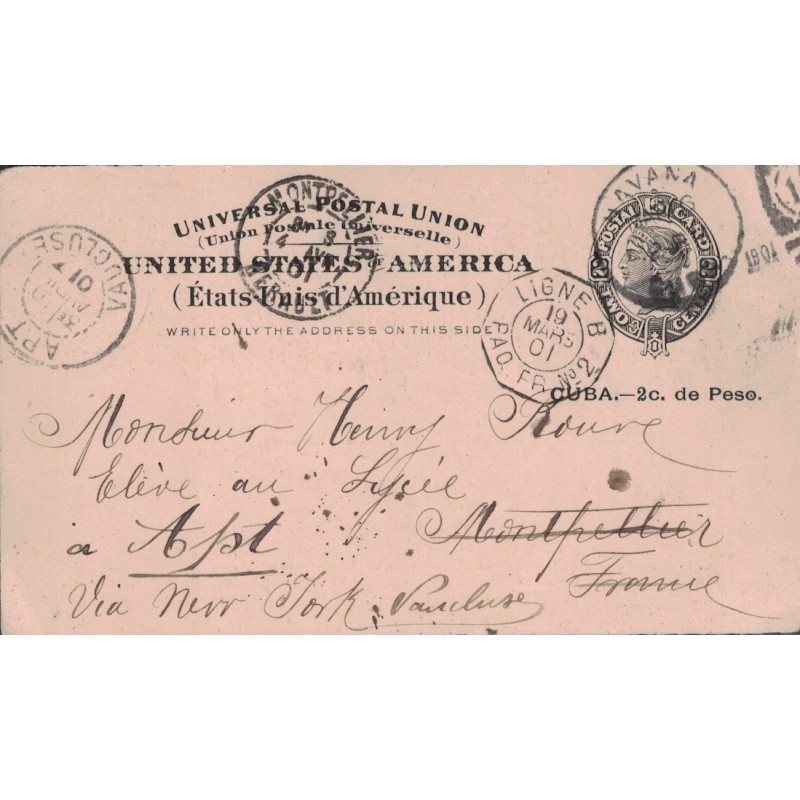 UNIVERSAL POSTAL UNION
(Union postale universelle)
UNITED STATES OF AMERICA
(États-Unis d'Amérique)
WRITE ONLY THE ADDRESS ON THIS SIDE
MONTPELLIER
HERAULT
APT
VAUCLUSE
LIGNE B
19
MARS
01
PAQ. FR. No 2
HAVANA
1901
POSTAL CARD
U S
2 2
TWO CENTS
CUBA.—2c. de Peso.
Monsieur Henry Rouve
Elève au Lycée
à Apt Montpellier
Via New York Vaucluse France